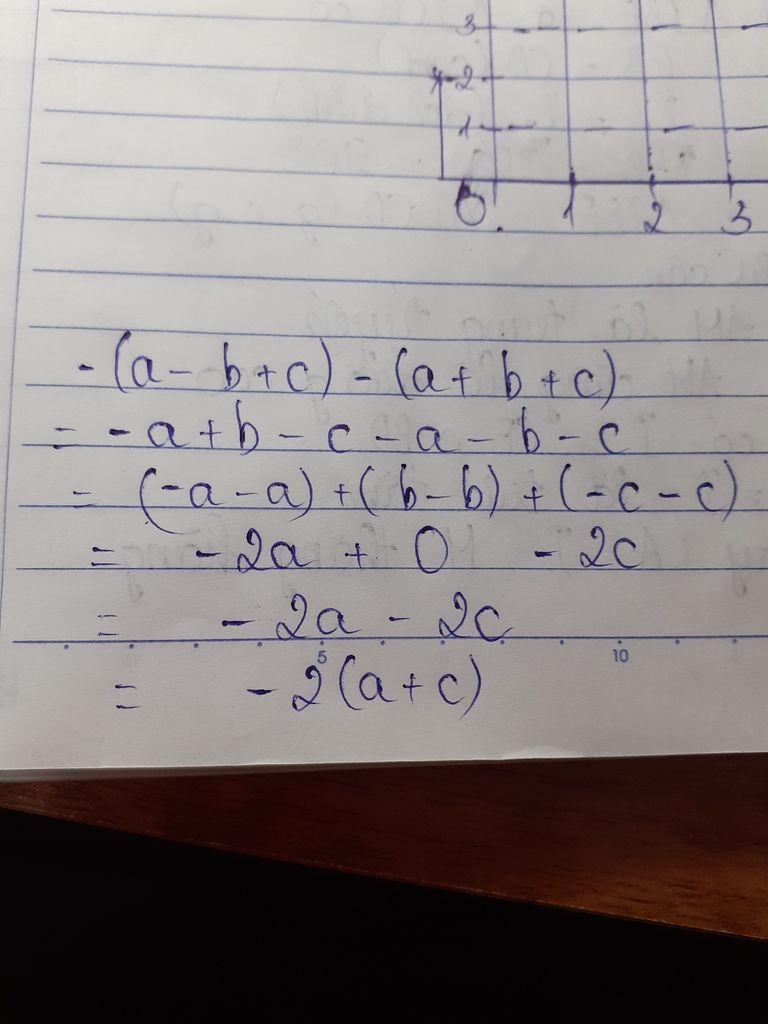 3
2
1
0 1 2 3
-(a - b + c) - (a + b + c)
= -a + b - c - a - b - c
= (-a - a) + (b - b) + (-c - c)
= -2a + 0 - 2c
= -2a - 2c
5 10
= -2(a + c)